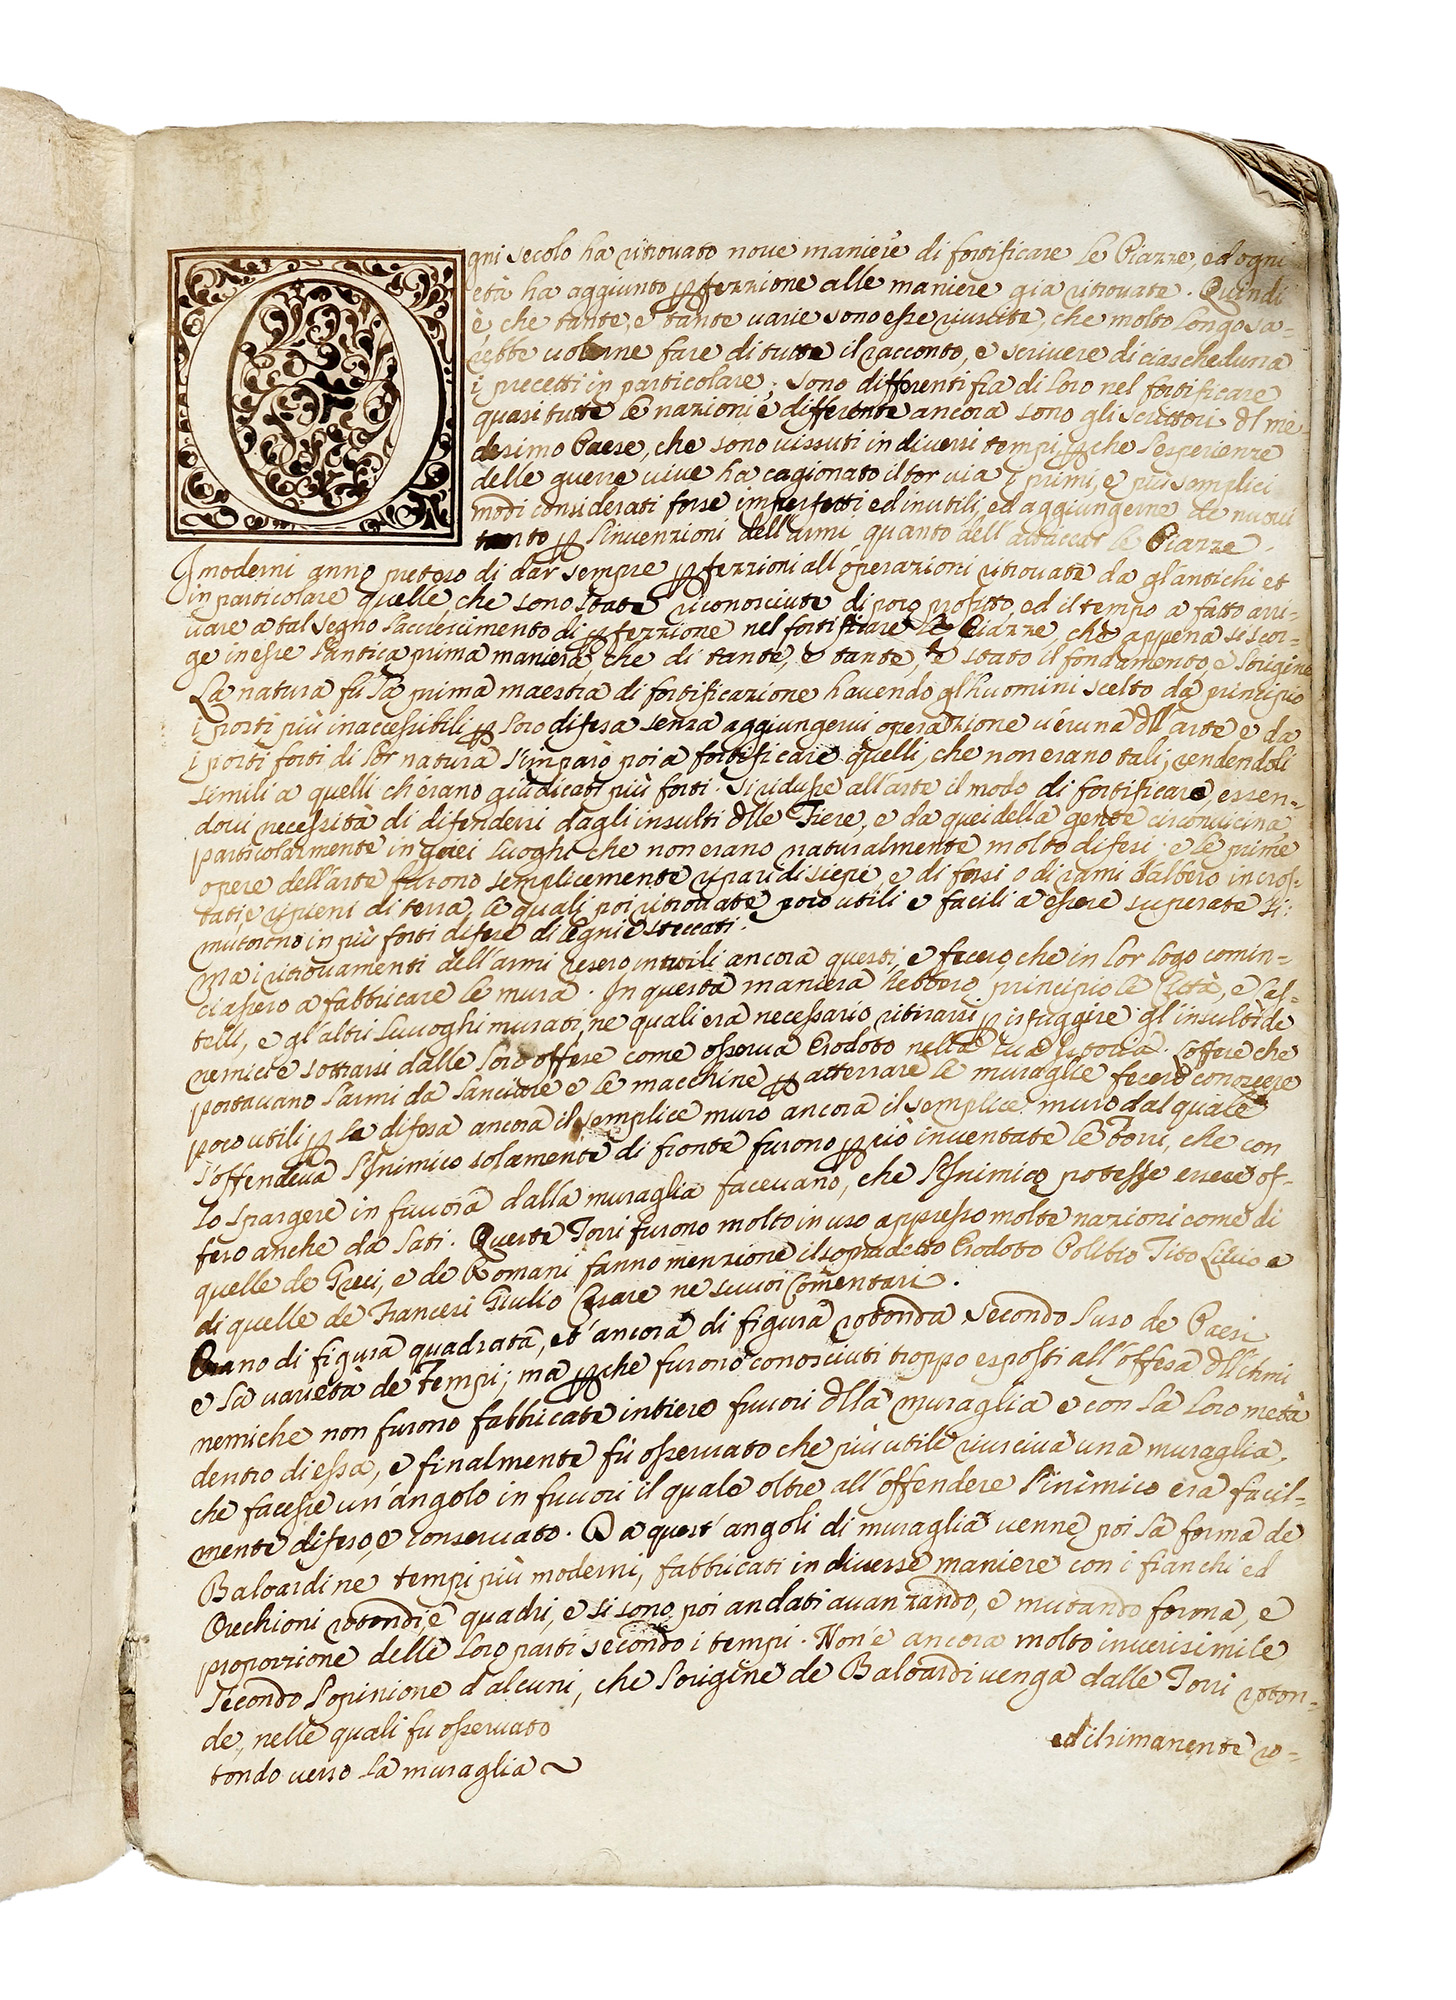 Ogni secolo ha ritrovato nove maniere di fortificare le Piazze, ed ogni
età ha aggiunto perfezzione alle maniere gia ritrovate. Quindi
è che tante, e tante varie sono esse riuscite, che molto longo sa-
rebbe volerne fare di tutte il racconto, e scrivere di ciascheduna
i precetti in particolare; sono differenti fra di loro nel fortificare
quasi tutte le nazioni e differente ancora sono gli scrittori dl me
desimo Paese, che sono vissuti in diversi tempi, perche l'esperienze
delle guerre vive ha cagionato il tor via i primi, e più semplici
modi considerati forse imperfetti ed inutili, ed aggiungerne de nuovi
tanto per l'invenzioni dell'armi, quanto dell'attaccar le Piazze.
I moderni anno preteso di dar sempre perfezzioni all'operazioni ritrovate da gl'antichi et
in particolare quelle, che sono state riconosciute di poco profitto, ed il tempo a fatto arri-
vare a tal segno l'accrescimento di perfezzione nel fortificare le Piazze, che appena si scor-
ge in esse l'antica prima maniera, che di tante, e tante, è stato il fondamento, e l'origine
La natura fu la prima maestra di fortificazione havendo gl'huomini scelto da principio
i posti più inaccessibili per loro difesa senza aggiungervi operazione veruna dll'arte e da
i posti forti di lor natura s'imparò poi a fortificare quelli, che non erano tali, rendendoli
simili a quelli ch'erano giudicati più forti. Si ridusse all'arte il modo di fortificare, essen-
dovi necessità di difendersi dagli insulti dlle Fiere, e da quei della gente circonvicina
particolarmente in quei luoghi che non erano naturalmente molto difesi e le prime
opere dell'arte furono semplicemente ripari di siepi e di fossi o di rami d'albero incros-
tati, e ripieni di terra, le quali poi ritrovate poco utili e facili a essere superate si
mutorno in più forti difese di legni e steccati.
Ma i ritrovamenti dell'armi resero inutili ancora questi, e fecero, che in lor logo comin-
ciassero a fabbricare le mura. In questa maniera hebbero principio le Città, e Cas-
telli, e gl'altri luvoghi murati, ne quali era necessario ritirarsi per isfuggire gl'insulti de
nemici e sottrarsi dalle loro offese come osserva Erodoto nella sua Istoria. L'offese che
portavano l'armi da lanciare e le macchine per atterrare le muraglie fecero conoscere
poco utili per la difesa ancora il semplice muro ancora il semplice muro dal quale
s'offendeva l'Inimico solamente di fronte furono perciò inventate le Torri, che con
lo spargere in fuvora dalla muraglia facevano, che l'Inimico potesse essere of-
feso anche da lati. Queste Torri furono molto in uso appresso molte nazioni come di
quelle de Greci, e de Romani fanno menzione il sopradetto Erodoto Polibio Tito Livio e
di quelle de Francesi Giulio Cesare ne suvoi Comentari.
Erano di figura quadrata, et ancora di figura rotonda secondo l'uso de Paesi
e la varietà de Tempi; ma perche furono conosciuti troppo esposti all'offesa dll'Armi
nemiche non furono fabbricate intiere fuvori dlla muraglia e con la loro metà
dentro di essa, e finalmente fù osservato che più utile riusciva una muraglia,
che facesse un'angolo in fuvori il quale oltre all'offendere l'inimico era facil-
mente difeso, e conservato. Da quest'angoli di muraglia venne poi la forma de
Baloardi ne tempi più moderni, fabbricati in diverse maniere con i fianchi ed
Orechioni rotondi, e quadri, e si sono poi andati avanzando, e mutando forma, e
proporzione delle loro parti secondo i tempi. Non è ancora molto inverisimile
secondo l'opinione d'alcuni, che l'origine de Baloardi venga dalle Torri roton-
de, nelle quali fu osservato ed il rimanente ro-
tondo verso la muraglia